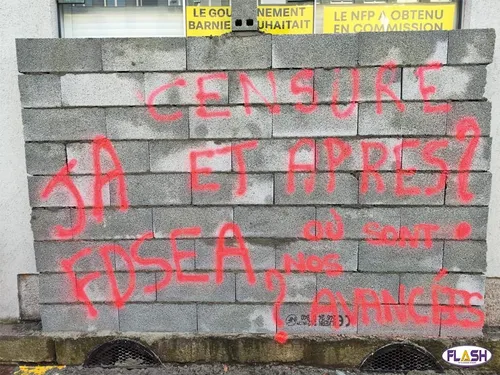 LE GOUVERNEMENT
BARNIER SOUHAITAIT
LE NFP A OBTENU
EN COMMISSION
CENSURE
ET APRES?
JA
FDSEA?
OÙ SONT
NOS
AVANCÉES
FLASH